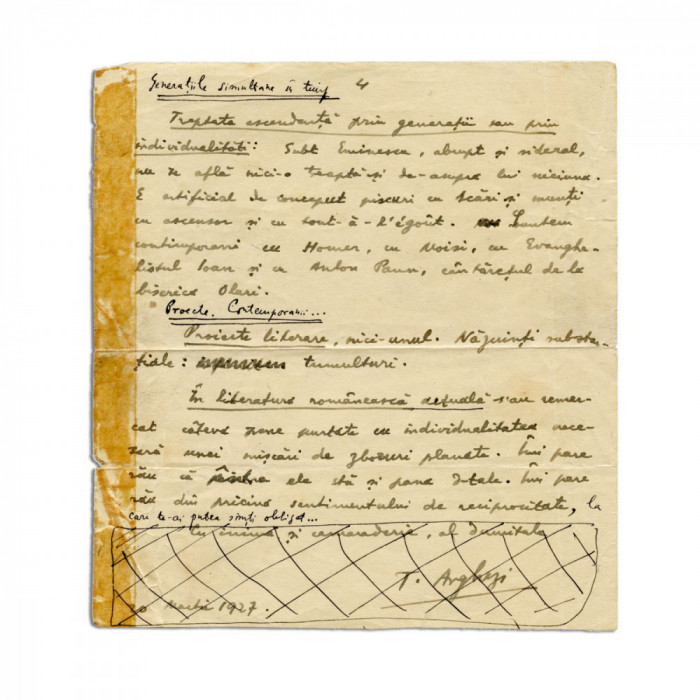 Generațiile simultane în timp 4
Treptata ascendență prin generații sau prin
individualități: Subt Eminescu, abrupt și sideral,
nu se află nici-o treaptă și de-asupra lui niciuna.
E artificial de conceput piscuri cu scări și munți
cu ascensor și cu tout-à-l'égoût. Suntem
contimporani cu Homer, cu Moisi, cu Evanghe-
listul Ioan și cu Anton Pann, cântărețul de la
biserica Olari.
Proecte. Contemporanii...
Proiecte literare, nici-unul. Năzuinți substan-
țiale: tumulturi.
În literatura românească actuală s'au remar-
cat câteva pene purtate cu individualitatea nece-
sară unei mișcări de zboruri planate. Îmi pare
rău că printre ele stă și pana d-tale. Îmi pare
rău din pricina sentimentului de reciprocitate, la
care te-ai putea simți obligat...
Cu inima și camaraderie, al dumitale
T. Arghezi
20 Martie 1927.